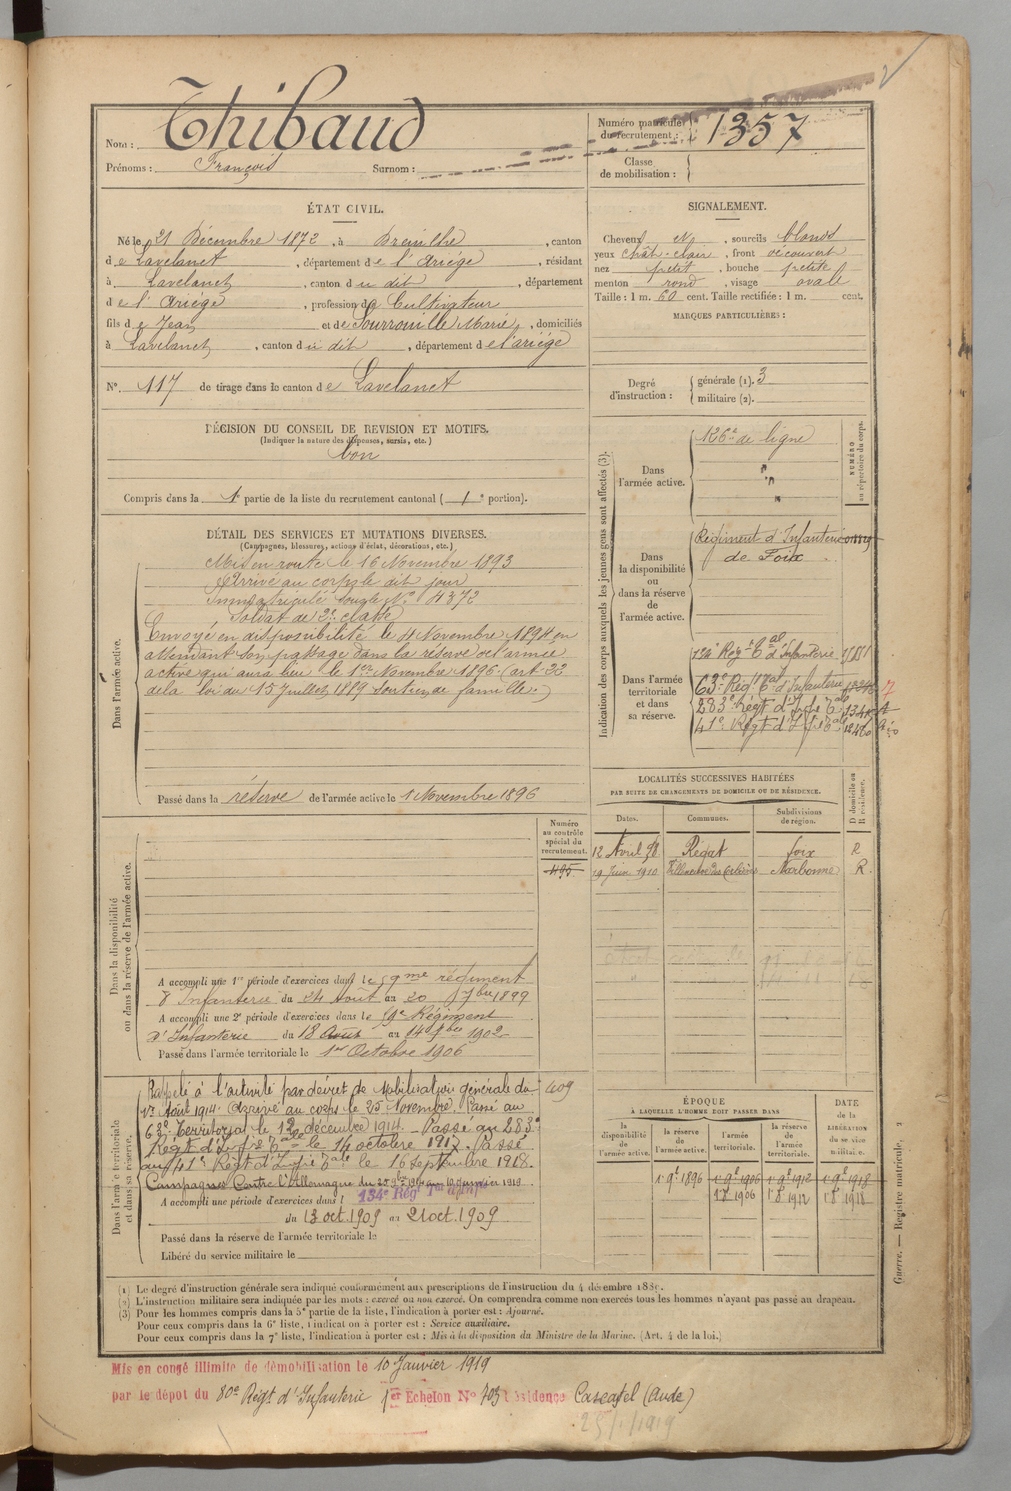 Nom : Thibaud
Prénoms : François Surnom :
Numéro matricule du recrutement : 1357
Classe de mobilisation :
ÉTAT CIVIL.
Né le 21 Décembre 1872, à Dreuilhe, canton
de Lavelanet, département de l'Ariège, résidant
à Lavelanet, canton du dit, département
de l'Ariège, profession de Cultivateur
fils de Jean et de Sourrouille Marie, domiciliés
à Lavelanet, canton du dit, département de l'ariège
N° 117 de tirage dans le canton de Lavelanet
SIGNALEMENT.
Cheveux , sourcils blonds
yeux chât. clair, front découvert
nez petit, bouche petite
menton rond, visage ovale
Taille : 1 m. 60 cent. Taille rectifiée : 1 m. cent.
MARQUES PARTICULIÈRES :
Degré d'instruction : générale (1). 3
militaire (2).
DÉCISION DU CONSEIL DE REVISION ET MOTIFS.
(Indiquer la nature des dispenses, sursis, etc.)
bon
Compris dans la 1e partie de la liste du recrutement cantonal ( 1e portion).
DÉTAIL DES SERVICES ET MUTATIONS DIVERSES.
(Campagnes, blessures, actions d'éclat, décorations, etc.)
Dans l'armée active.
Mis en route le 16 Novembre 1893
Arrivé au corps le dit jour
Immatriculé sous le N° 4372
Soldat de 2e classe
Envoyé en disponibilité le 4 Novembre 1894 en
attendant son passage dans la réserve de l'armée
active qui aura lieu le 1er Novembre 1896 (art. 22
de la loi du 15 juillet 1889 Soutien de famille.)
Passé dans la réserve de l'armée active le 1 Novembre 1896
Indication des corps auxquels les jeunes gens sont affectés (3).
NUMÉRO au répertoire du corps.
Dans l'armée active.
126e de ligne
"
"
"
Dans la disponibilité ou dans la réserve de l'armée active.
Régiment d'Infanterie
de Foix
Dans l'armée territoriale et dans sa réserve.
134e Régt Tal d'Infanterie
63e Régt Tal d'Infanterie
283e Régt d'Infie Tale
41e Régt d'Infie Tale
LOCALITÉS SUCCESSIVES HABITÉES
PAR SUITE DE CHANGEMENTS DE DOMICILE OU DE RÉSIDENCE.
Dates. Communes. Subdivisions de région. D domicile ou R résidence.
12 Avril 98 Régat foix R
19 Juin 1910 Villeneuve des Corbières Narbonne R.
Numéro au contrôle spécial du recrutement.
495
Dans la disponibilité ou dans la réserve de l'armée active.
A accompli une 1re période d'exercices dans le 59me régiment
d'Infanterie du 24 Août au 20 7bre 1899
A accompli une 2e période d'exercices dans le 59e Régiment
d'Infanterie du 18 Août au 14 7bre 1902
Passé dans l'armée territoriale le 1er Octobre 1906
Dans l'armée territoriale et dans sa réserve.
Rappelé à l'activité par décret de Mobilisation générale du 409
1er Août 1914. Arrivé au corps le 25 Novembre. Passé au
63e Territorial le 12 décembre 1914. Passé au 283e
Régt d'Infie Tale le 14 octobre 1917. Passé
au 41e Régt d'Infie Tale le 16 septembre 1918.
Campagnes Contre l'Allemagne du 25 9bre 1914 au 10 Janvier 1919
A accompli une période d'exercices dans l 134e Rég Tal d'Infie
du 13 oct. 1909 au 21 oct. 1909
Passé dans la réserve de l'armée territoriale le
Libéré du service militaire le
ÉPOQUE
À LAQUELLE L'HOMME DOIT PASSER DANS
la disponibilité de l'armée active. la réserve de l'armée active. l'armée territoriale. la réserve de l'armée territoriale.
DATE de la LIBÉRATION du service militaire.
1 9e 1896 1 9e 1906 1 9e 1912 1 9e 1918
1 8 1906 1 8 1912 1 8 1918
Guerre. — Registre matricule. 2
(1) Le degré d'instruction générale sera indiqué conformément aux prescriptions de l'instruction du 4 décembre 1889.
(2) L'instruction militaire sera indiquée par les mots : exercé ou non exercé. On comprendra comme non exercés tous les hommes n'ayant pas passé au drapeau.
(3) Pour les hommes compris dans la 5e partie de la liste, l'indication à porter est : Ajourné.
Pour ceux compris dans la 6e liste, l'indication à porter est : Service auxiliaire.
Pour ceux compris dans la 7e liste, l'indication à porter est : Mis à la disposition du Ministre de la Marine. (Art. 4 de la loi.)
Mis en congé illimité de démobilisation le 10 Janvier 1919
par le dépôt du 80e Régt d'Infanterie 1er Echelon N° 703 résidence Cascatel (Aude)
25/1/1919